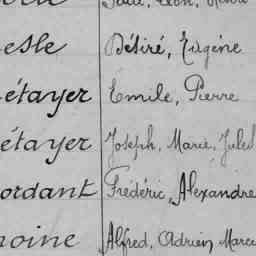 Désiré, Eugène
étayer Emile, Pierre
étayer Joseph, Marie, Jules
ordant Frédéric, Alexandre
moine Alfred, Adrien, Marce